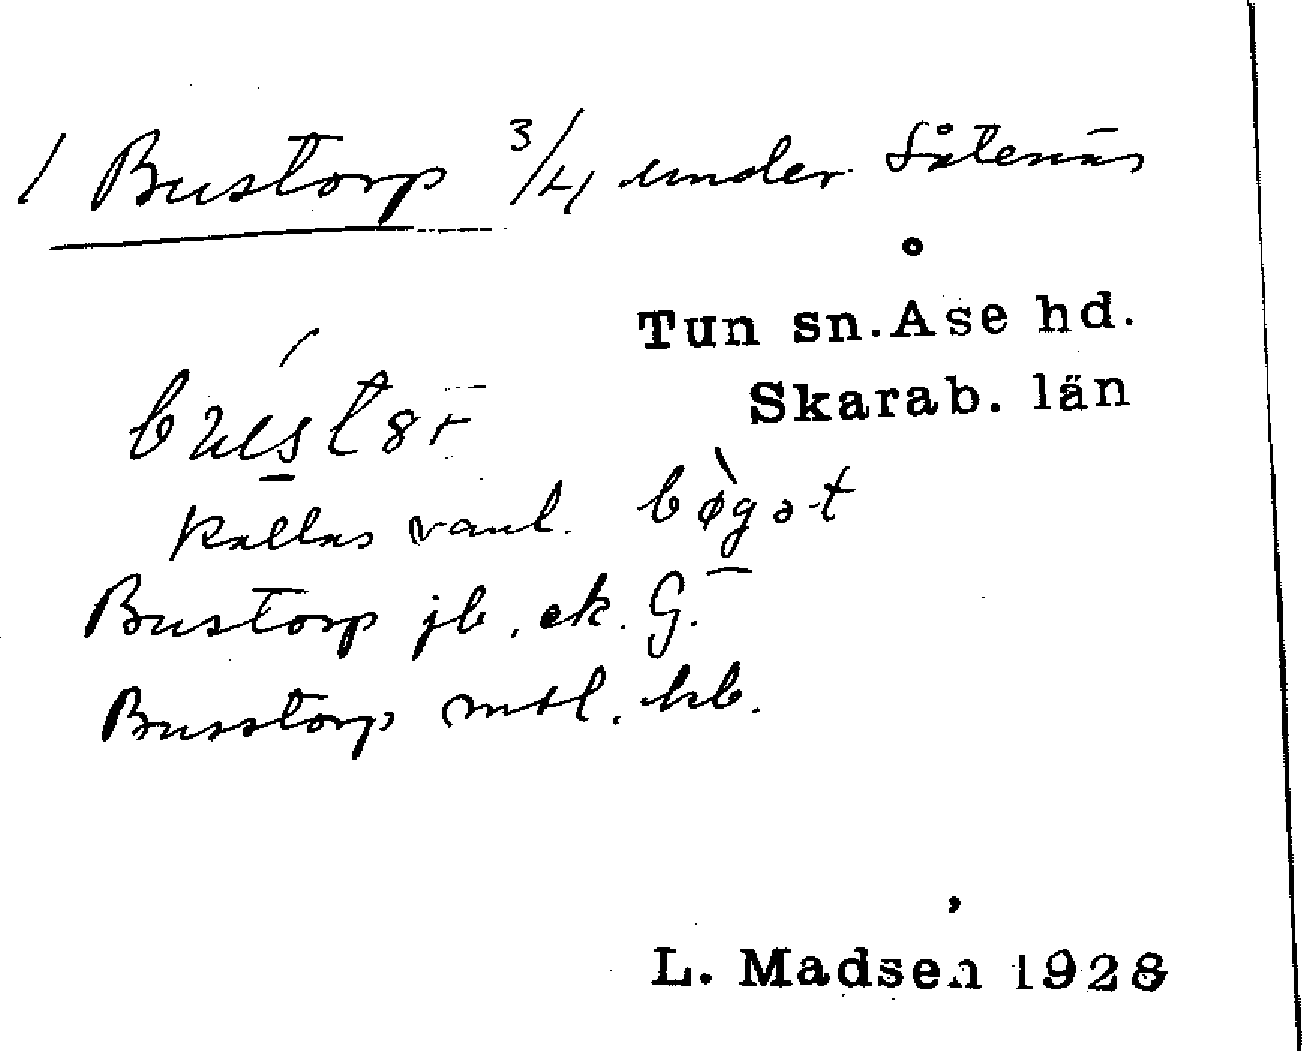 1 Bustorp 3/4 under Såtenäs
Tun sn. Åse hd.
Skarab. län
kallas vanl. bøgət
Bustorp jb. ek. G.
Busstorp mtl. kb.
L. Madsen 1928